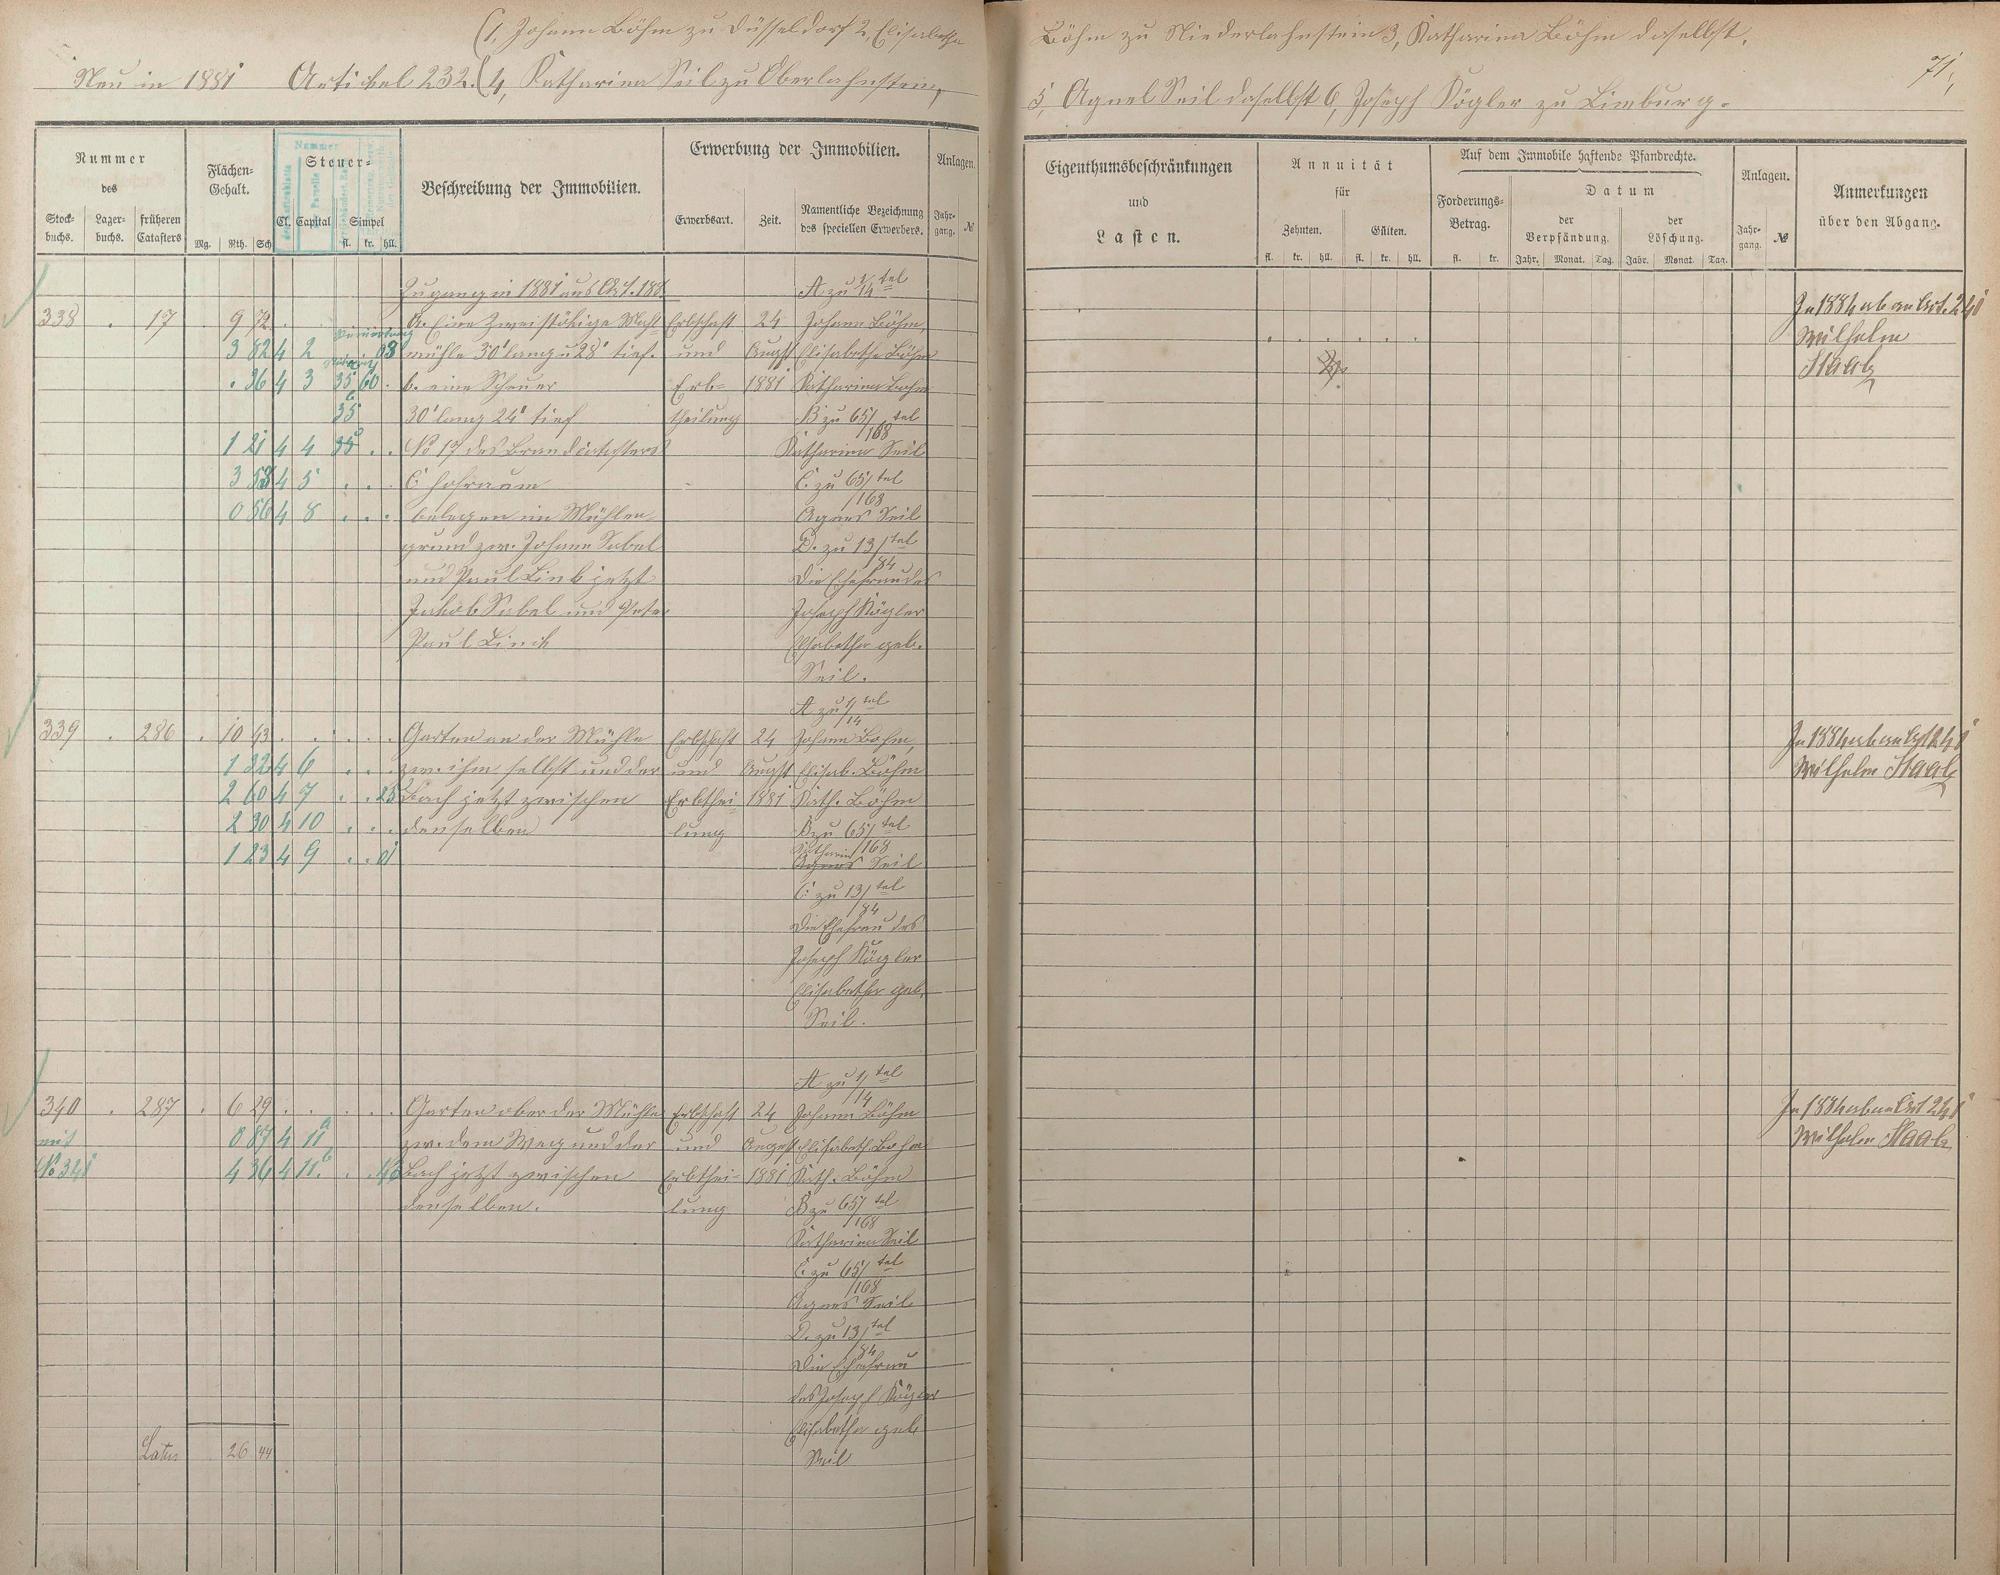 (1, Johann Böhm zu Düsseldorf 2, Elisabetha
Neu in 1881 Artikel 232. (4, Katharina Seil zu Oberlahnstein,
Nummer
des
Stock-
buchs.
Lager-
buchs.
früheren
Catasters
Flächen-
Gehalt.
Mg. Rth. Sch
Nummer
Parzelle
Steuer-
Cl. Capital Simpel
fl. kr. hll.
Beschreibung der Immobilien.
Erwerbung der Immobilien.
Erwerbsart. Zeit.
Namentliche Bezeichnung
des speciellen Erwerbers.
Anlagen.
Jahr-
gang. №
Zugang in 1881 aus Art. 188. A zu 1/14 tel
338 . 17 . 9 72 . a. Eine Zweistökige Mahl- Erbschaft 24 Johann Böhm,
3 82 4 2 08 mühle 30' lang u 28' tief. und August Elisabetha Böhm
. 36 4 3 35 60 . b. eine Scheuer Erb- 1881 Katharina Böhm
35 30' lang 24' tief theilung B zu 65/168 tel
1 21 4 4 35 . . No 17 des Brandcatasters Katharina Seil
3 58 4 5 . . . c. Hofraum C. zu 65/168 tel
0 56 4 8 . . . belegen im Mühlen- Agnes Seil
grund zw. Johann Sabel D. zu 13/84 tel
und Paul Link jetzt Die Ehefrau des
Jakob Sabel und Peter Joseph Kögler
Paul Linck Elisabetha geb.
Seil.
A zu 1/14 tel
339 . 286 . 10 43 . . . . . Garten an der Mühle Erbschaft 24 Johann Böhm,
1 32 4 6 . . . zw. ihm selbst und der und August Elisab. Böhm
2 60 4 7 . . 25 Bach jetzt zwischen Erbthei- 1881 Kath. Böhm
2 30 4 10 . . . denselben lung B zu 65/168 tel
1 23 4 9 . . 01 Katharina
Agnes Seil
C. zu 13/84 tel
Die Ehefrau des
Joseph Kögler
Elisabetha geb.
Seil.
A zu 1/14 tel
340 . 287 . 6 29 . . . . . Garten ober der Mühle Erbschaft 24 Johann Böhm
mit 0 87 4 11 a zw. dem Weg und der und August Elisabeth Böhm
No 341 4 36 4 11. b . . 43 Bach jetzt zwischen Erbthei- 1881 Kath. Böhm
denselben. lung B zu 65/168 tel
Katharina Seil
C. zu 65/168 tel
Agnes Seil
D. zu 13/84 tel
Die Ehefrau
des Joseph Kögler
Elisabetha geb.
Seil
Latus 26 44
Böhm zu Niederlahnstein 3, Katharina Böhm daselbst,
71,
5, Agnes Seil daselbst 6, Joseph Kögler zu Limburg.
Eigenthumsbeschränkungen
und
Lasten.
Annuität
für
Zehnten. Gülten.
fl. kr. hll. fl. kr. hll.
Auf dem Immobile haftende Pfandrechte.
Forderungs-
Betrag.
fl. kr.
Datum
der
Verpfändung.
der
Löschung.
Jahr. Monat. Tag. Jahr. Monat. Tag.
Anlagen.
Jahr-
gang. №
Anmerkungen
über den Abgang.
In 1884 ab an Art. 241
Wilhelm
Staab
In 1884 ab an Art 241
Wilhelm Staab
In 1884 ab an Art 241
Wilhelm Staab